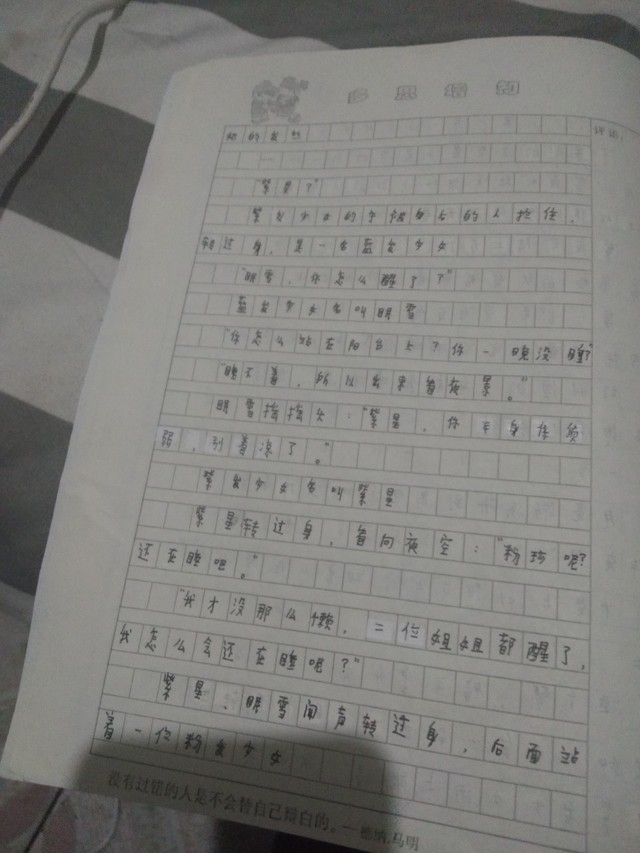 多思播韵
她的发丝
一
“紫星？”
紫发少女的手被身后的人拉住，
转过身，是一名蓝发少女
“明雪，你怎么醒了？”
蓝发少女名叫明雪
“你怎么站在阳台上？你一晚没睡？”
“睡了着，所以出来看夜景。”
明雪摇摇头：“紫星，你本身体质
弱，别着凉了。”
紫发少女名叫紫星
紫星转过身，看向夜空：“粉琦呢？
还在睡吧。”
“我才没那么懒，二位姐姐都醒了，
我怎么会还在睡呢？”
紫星、明雪闻声转过身，后面站
着一位粉发少女
没有过错的人是不会替自己辩白的。—德纳.马明
评语：